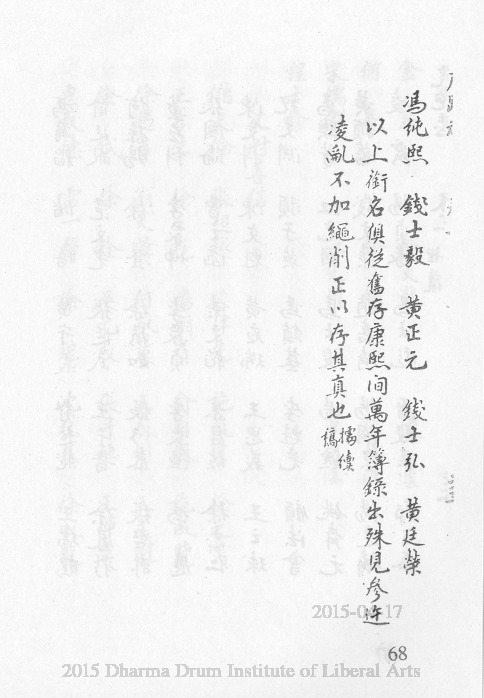 馮純熙 錢士毅 黃正元 錢士弘 黃廷榮
以上銜名俱從舊存康熙间萬年簿錄出殊見參迕
凌亂不加繩削正以存其真也 擂續稿
2015-0 -17
68
2015 Dharma Drum Institute of Liberal Arts